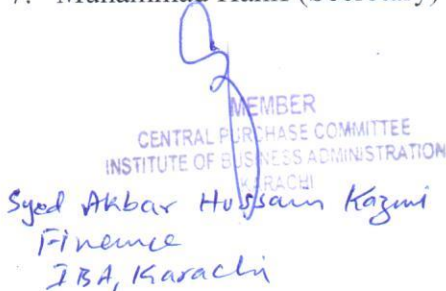 7. Muhammad Hanif (Secretary)
MEMBER
CENTRAL PURCHASE COMMITTEE
INSTITUTE OF BUSINESS ADMINISTRATION
KARACHI
Syed Akbar Hussain Kazmi
Finance
IBA, Karachi